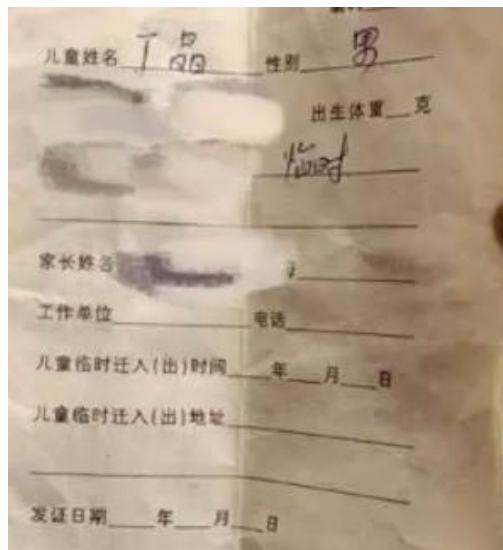 儿童姓名 丁晶 性别 男
出生体重 克
临时
家长姓名
工作单位 电话
儿童临时迁入(出)时间 年 月 日
儿童临时迁入(出)地址
发证日期 年 月 日